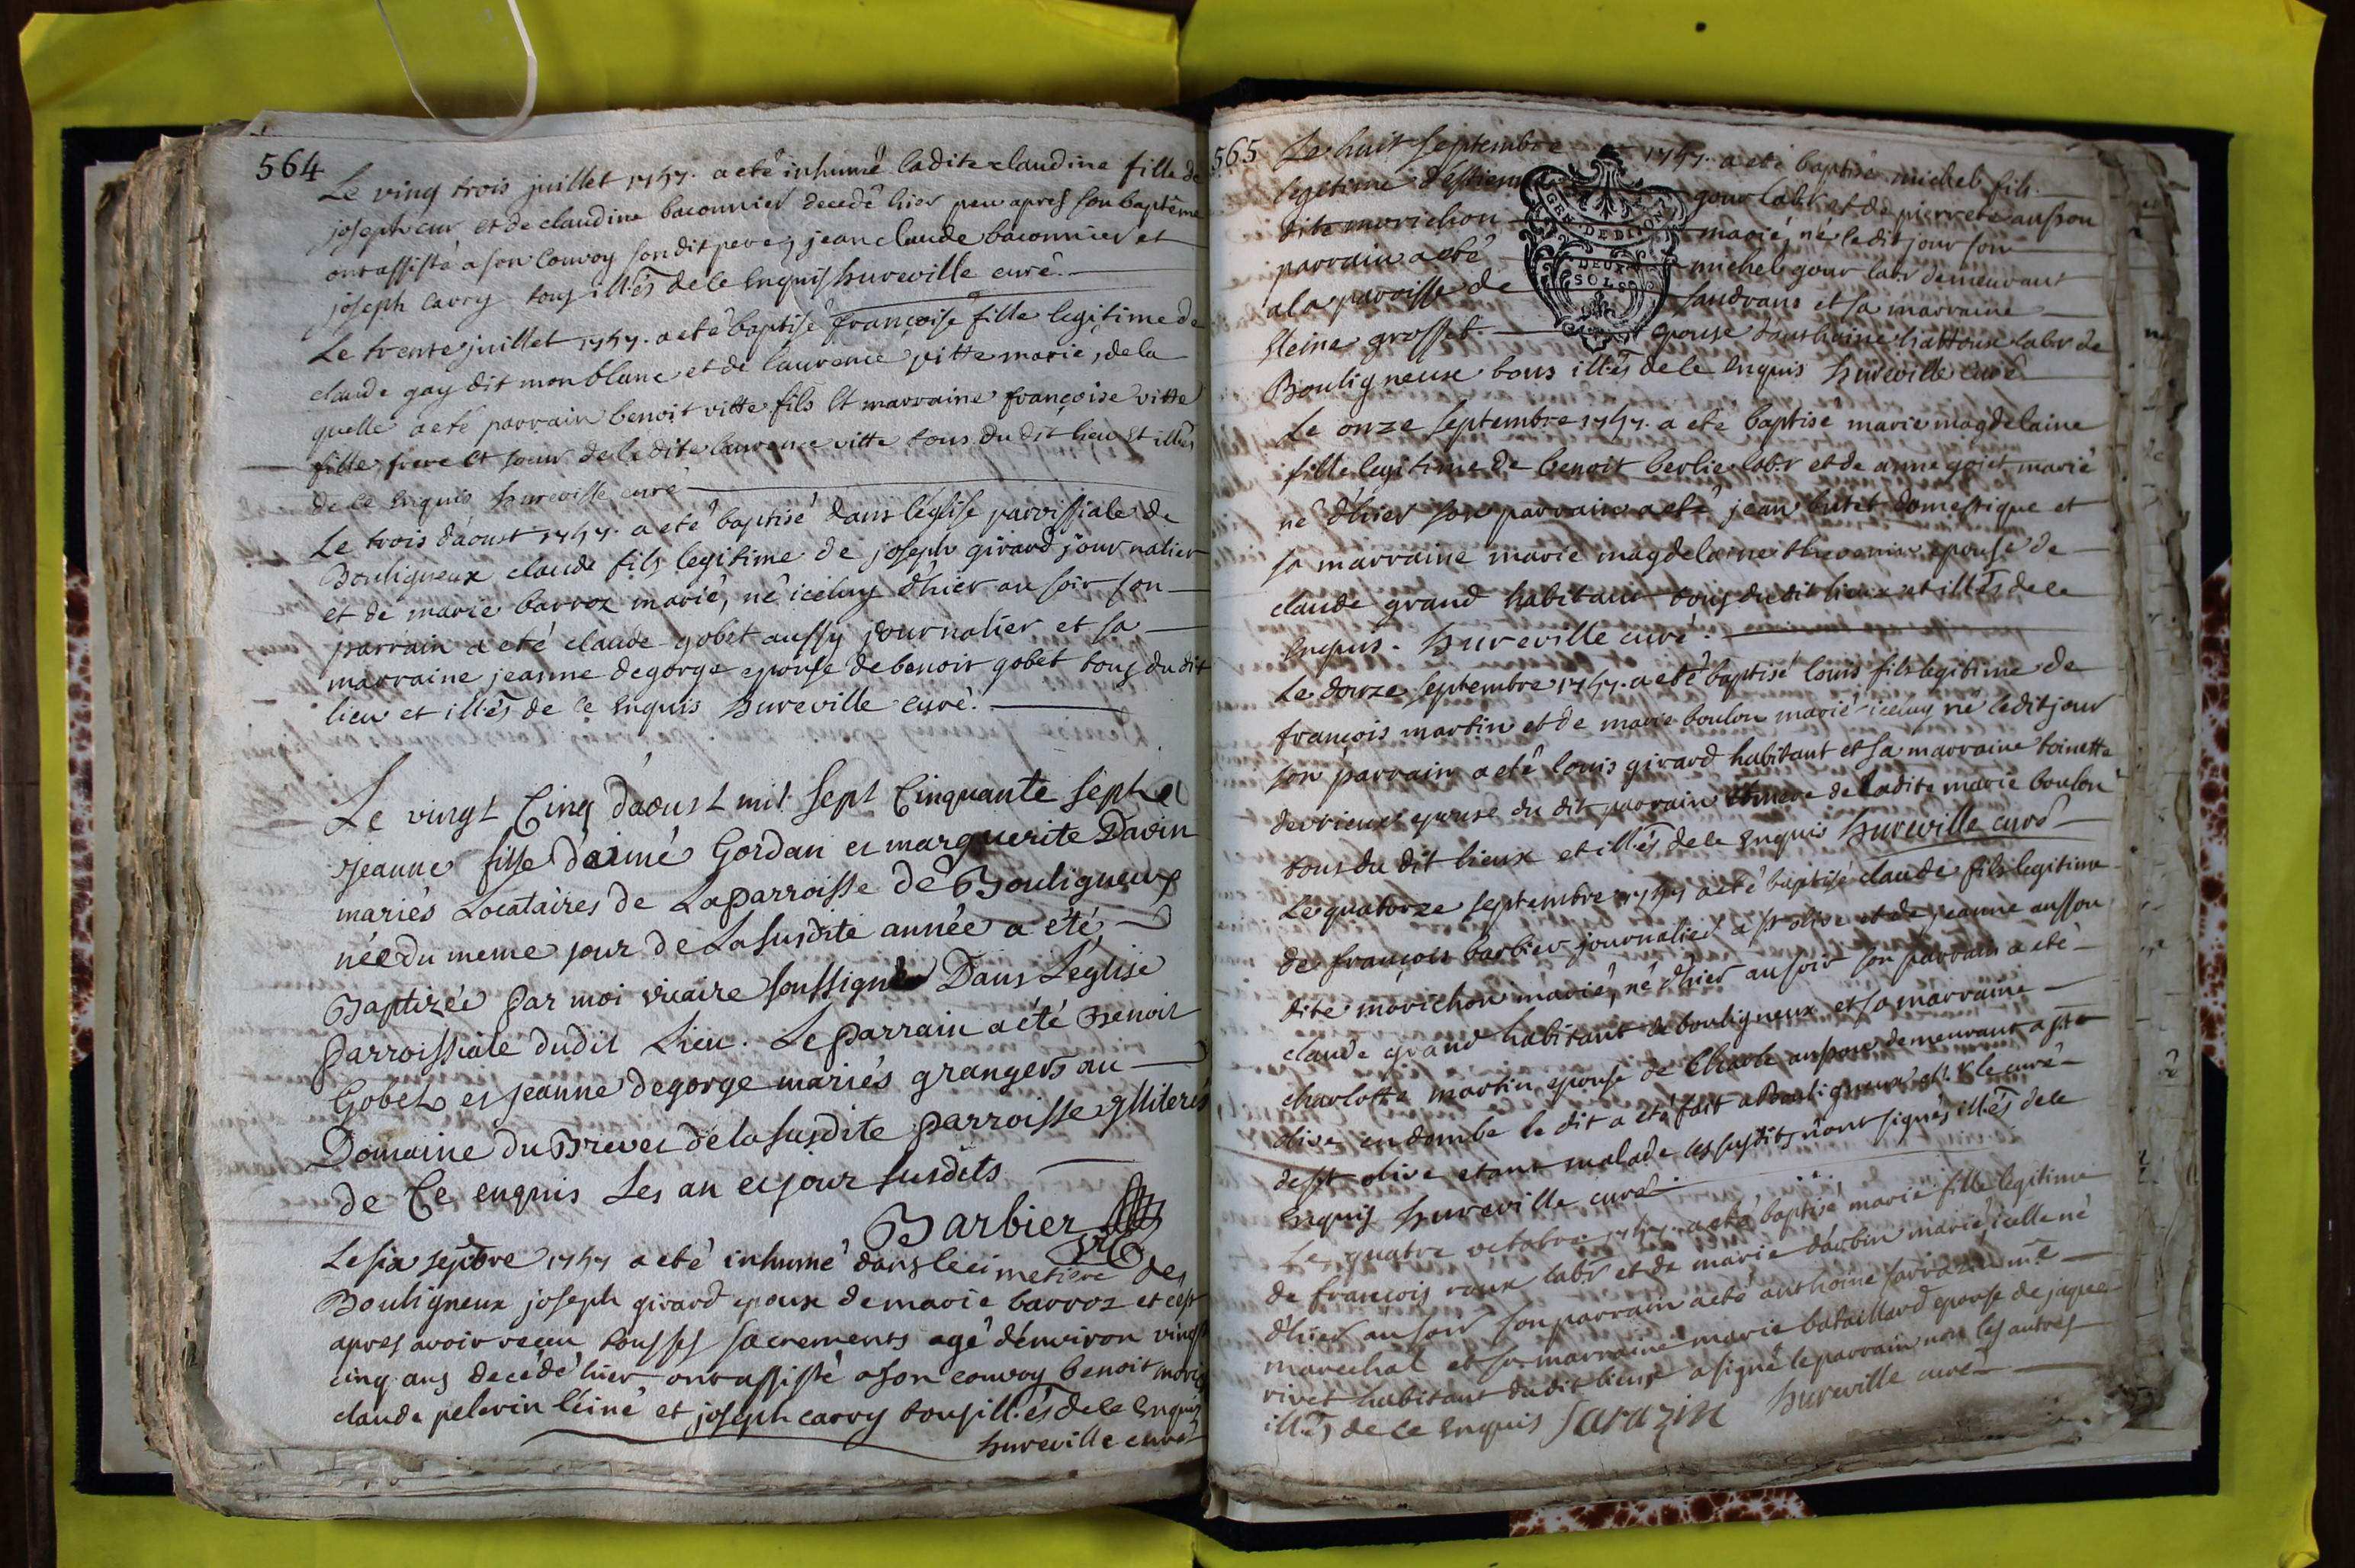 564
Le ving trois juillet 1757. a eté inhumé ladite claudine fille de
joseph cur et de claudine baconnier decedé hier peu apres son baptême
ont assisté a son convoy son dit pere, jean claude baconnier et
joseph carry tous illés de ce enquis hureville curé.
Le trente juillet 1757. a eté baptisé françoise fille legitime de
claude gay dit monblanc et de laurence vitte marié, de la
quelle a eté parrain benoit vitte fils et marraine françoise vitte
fille frere et soeur de ladite laurence vitte tous du dit lieu et illés
de ce enquis hureville curé
Le trois d'aoust 1757. a eté baptisé dans l'église parroissiale de
Bouligneux claude fils legitime de joseph girard journalier
et de marie barroz marié, né iceluy d'hier au soir son
parrain a eté claude gobet aussy journalier et sa
marraine jeanne degorge epouse de benoit gobet tous du dit
lieu et illés de ce enquis hureville curé.
Le vingt Cinq d'aoust mil sept Cinquante sept
jeanne fille d'aimé Gordan et marguerite Davin
mariés Locataires de La parroisse de Bouligneux
née du meme jour de La susdite année a été
Baptizée par moi vicaire soussigné Dans L'eglise
parroissiale dudit Lieu. Le parrain a été Benoit
Gobet et jeanne degorge mariés grangers au
Domaine du Brevet de la susdite parroisse illiterés
de Ce enquis Les an et jour susdits
Barbier
Le six septbre 1757 a eté inhumé dans le cimetiere de
Bouligneux joseph girard epoux de marie barroz et c'est
apres avoir recu tous ses sacrements agé d'environ vingt
cinq ans decedé hier ont assisté a son convoy benoit
claude pelerin l'éiné et joseph carry tous illés de ce enquis
hureville curé
565
Le huit septembre 1757. a eté baptisé michel fils
legitime d'estienne gour labr et de pierreteausson
dite morichon marié, né le dit jour son
parrain a eté michel gour labr demeurant
a la paroisse de sandrans et sa marraine
heleine grosset epouse d'anthoine labr de
Bouligneux tous illés de ce enquis hureville curé
GEN. DE DIJON
DEUX
SOLS
Le onze septembre 1757. a eté baptisé marie magdelaine
fille legitime de benoit berlie labr et de anne gojet marié
né d'hier son parrain a eté jean butet domestique et
sa marraine marie magdelaine thevenin epouse de
claude grand habitant tous du dit lieux et illés de ce
enquis. hureville curé.
Le douze septembre 1757. a eté baptisé louis fils legitime de
françois martin et de marie boulon marié iceluy né le dit jour
son parrain a eté louis girard habitant et sa marraine toinette
derrieux epouse du dit parrain et mere de ladite marie boulon
tous du dit lieux et illés de ce enquis hureville curé
Le quatorze septembre 1757 a eté baptisé claude fils legitime
de françois barbier journalier a st olive et de jeanne ausson
dite morichon marié, né d'hier au soir son parrain a eté
claude grand habitant de bouligneux et sa marraine
charlotte martin epouse de Charle ausson demeurant a ste
olive en dombe le dit a eté fait a Bouligneux Mr le curé
de st olive etant malade les susdits n'ont signés illés de ce
enquis hureville curé.
Le quatre octobre 1757. a eté baptisé marie fille legitime
de françois roux labr et de marie darbin marié, icelle né
d'hier au soir son parrain a eté anthoine sarrazin me
marechal et sa marraine marie bataillard epouse de jaque
rivet habitant du dit lieux a signé le parrain non les autres
illés de ce enquis Sarazin hureville curé